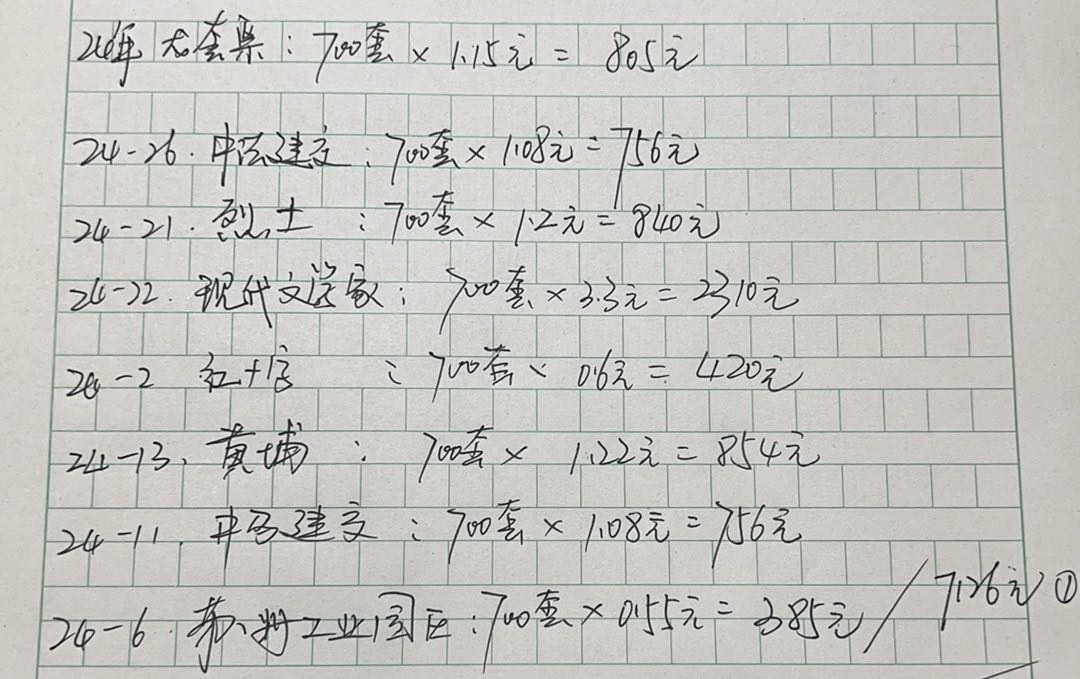 24年大套票：700套×1.15元=805元
24-26.中法建交：700套×1.08元=756元
24-21.烈士：700套×1.2元=840元
24-22.现代文学家：700套×3.3元=2310元
24-2 红十字：700套×0.6元=420元
24-13.黄埔：700套×1.22元=854元
24-11.中马建交：700套×1.08元=756元
24-6.苏州工业园区：700套×0.55元=385元/7126元①